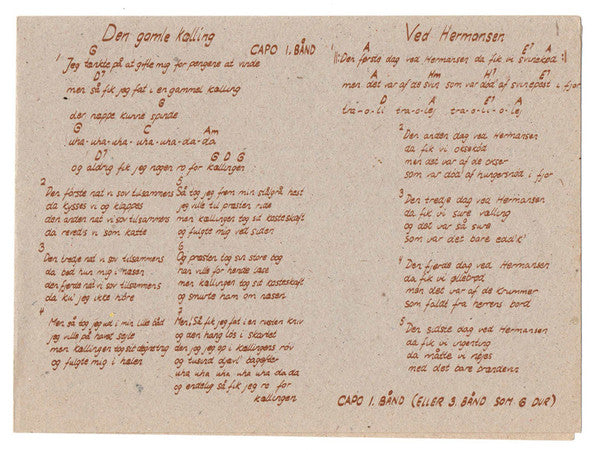 Den gamle kælling
CAPO 1. BÅND
G
1 Jeg tænkte på at gifte mig for pengene at vinde
D7
men så fik jeg fat i en gammel kælling
G
der næppe kunne spinde
G C Am
uha-uha-uha-uha-uha-da-da
D7 G D G
og aldrig fik jeg nogen ro for kællingen
2
Den første nat vi sov tilsammens
da kysses vi og klappes
den anden nat vi sov tilsammens
da reveds vi som katte
3
Den tredie nat vi sov tilsammens
da bed hun mig i næsen
den fjerde nat vi sov tilsammens
da ku' jeg ikke høre
4
Men så tog jeg ud i min lille båd
jeg ville på havet sejle
men kællingen tog sit
og fulgte mig i hælen
5
Så tog jeg frem min stålgrå hest
jeg ville til præsten ride
men kællingen tog sd kosteskaft
og fulgte mig ved siden
6
Og præsten tog sin store bog
han ville for hende læse
men kællingen tog sd kosteskaft
og smurte ham om næsen
7
Men! Så fik jeg fat i en rusten kniv
og den hang løs i skæftet
den jog jeg op i kællingens röv
og tusind djævl' bagefter
uha uha uha uha uha da da
og endelig så fik jeg ro for
kællingen
Ved Hermansen
A E7 A
1 ||: Den første dag ved Hermansen da fik vi svinekød :||
A Hm H7 E7
men det var af de svin som var død af svinepest i fjor
A D A E7 A
tra-o-li tra-o-lej tra-o-li-o-lej
2
Den anden dag ved Hermansen
da fik vi oksekød
men det var af de okser
som var død af hungersnød i fjor
3
Den tredje dag ved Hermansen
da fik vi sure vælling
og det var så sure
som var det bare eddik'
4
Den fjerde dag ved Hermansen
da fik vi øllebrød
men det var af de krummer
som faldt fra herrens bord
5
Den sidste dag ved Hermansen
da fik vi ingenting
da måtte vi nøjes
med det bare brændevin
CAPO 1. BÅND (ELLER 3. BÅND SOM G DUR)